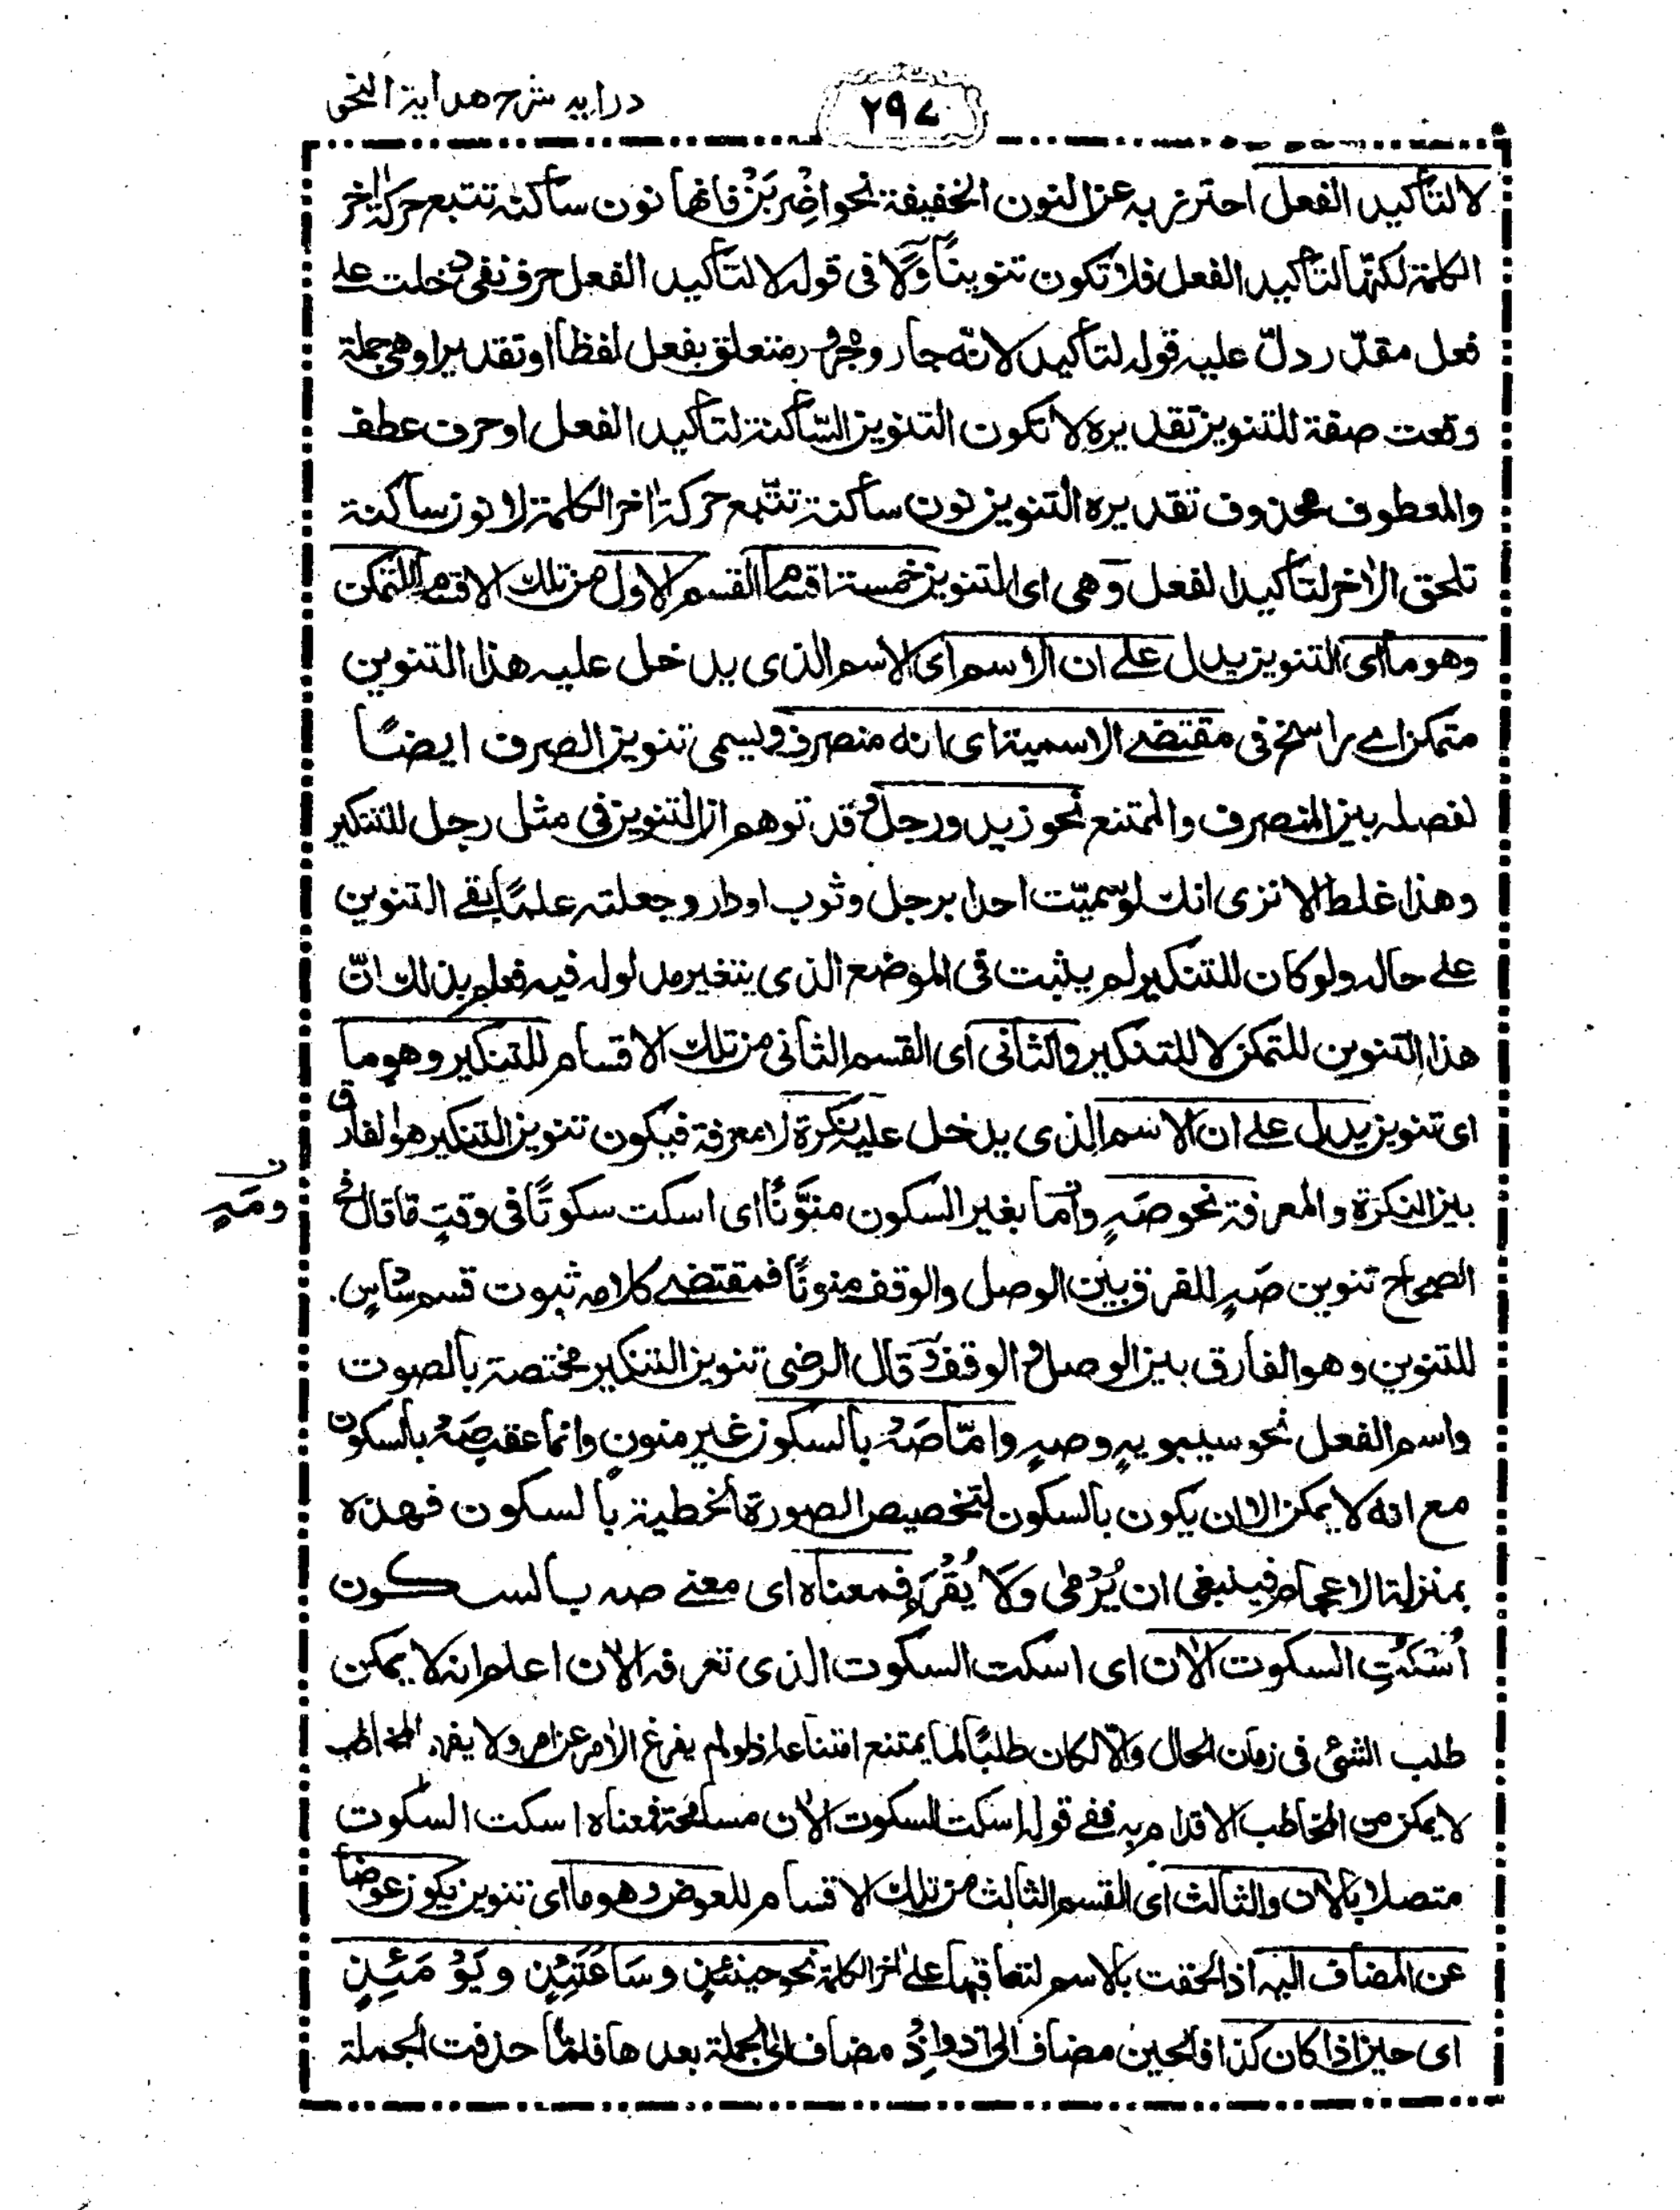 درایه شرح هدایة النحو
۲۹۷
لا لتأكيد الفعل احترز به عن النون الخفيفة نحو اضْرِبَنْ فانها نون ساكنة تتبع حركة اٰخر
الكلمة لكنّها لتأكيد الفعل فلا تكون تنوينًا وَلا فى قوله لا لتأكيد الفعل حرف نفى دخلت على
فعل مقدّر دلّ عليه قوله لتأكيد لانّه جار ومجرور متعلق بفعل لفظاً او تقديرا وهى جملة
وقعت صفة للتنوين تقديره لا تكون التنوين السّاكنة لتأكيد الفعل او حرف عطف
والمعطوف محذوف تقديره التنوين نون ساكنة تتّبع حركة اٰخر الكلمة لا نون ساكنة
تلحق الاٰخر لتأكيد الفعل وَهى اى التنوين خمسة اقسام القسم الاول من تلك الاقسام للتمكن
وهو ما اى التنوين يدل على ان الاسم اى الاسم الذى يدخل عليه هذا التنوين
متمكن اے راسخ فى مقتضے الاسمية اى انه منصرف ويسمى تنوين الصرف ايضًا
لفصله بين المنصرف والممتنع نحو زيد ورجل وقد توهم ان التنوين فى مثل رجل للتنكير
وهذا غلط الا ترى انك لو سميّت احدا برجل وثوب او دار وجعلته علمًا بقے التنوين
علے حاله ولو كان للتنكير لم يثبت فى الموضع الذى يتغير مدلوله فيه فعلم بذلك انّ
هذا التنوين للتمكن لا للتنكير والثانى اى القسم الثانى من تلك الاقسام للتنكير وهو ما
اى تنوين يدل علے ان الاسم الذى يدخل عليه نكرة لا معرفة فيكون تنوين التنكير هو الفارق
بين النكرة والمعرفة نحو صَهٍ وانّما بغير السكون منوّنًا اى اسكت سكوتًا فى وقتٍ مّا قال فى
ومَهٍ
الصحاح تنوين صَهٍ للفرق بين الوصل والوقف منونًا فمقتضے كلامه ثبوت قسم سادس
للتنوين وهو الفارق بين الوصل و الوقف وَقال الرضى تنوين التنكير مختصة بالصوت
واسم الفعل نحو سيبويهٍ وصهٍ وامّا صَهْ بالسكون غير منون وانما عقب صَهْ بالسكون
مع انه لا يمكن الا ان يكون بالسكون لتخصيص الصورة الخطية بالسكون فهذه
بمنزلة الاعجام فينبغى ان يُرْمٰى وَلَا يُقْرَء فمعناه اى معنے صه بالسكون
اُسْكُتِ السكوت الاٰن اى اسكت السكوت الذى تعرفه الاٰن اعلم انه لا يمكن
طلب الشئ فى زمان الحال وَالّا لكان طلبًا لما يمتنع امتثاله اذ لو لم يفرغ الاٰمر عن امره ولا يفهم المخاطب
لا يمكن من المخاطب الاقدام به ففے قوله اسكت السكوت الاٰن مسامحة فمعناه اسكت السكوت
متصلا بالاٰن والثالث اى القسم الثالث من تلك الاقسام للعوض وهو ما اى تنوين يكون عوضًا
عن المضاف اليه اذ الحقت بالاسم لتعاقبها علے اٰخر الكلمة نحو حينئذٍ وسَاعَتَئِذٍ ويَوْمَئِذٍ
اى حين اذا كان كذا فالحين مضاف الى اذ واِذْ مضاف الى الجملة بعدها فلمّا حذفت الجملة